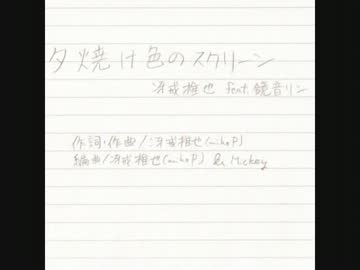 夕焼け色のスクリーン
冴戒椎也 feat.鏡音リン
作詞・作曲/冴戒椎也(mihoP)
編曲/冴戒椎也(mihoP) & Mckey